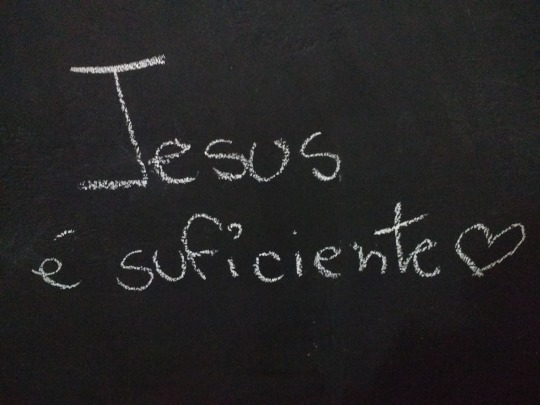 Jesus
é suficiente ♡